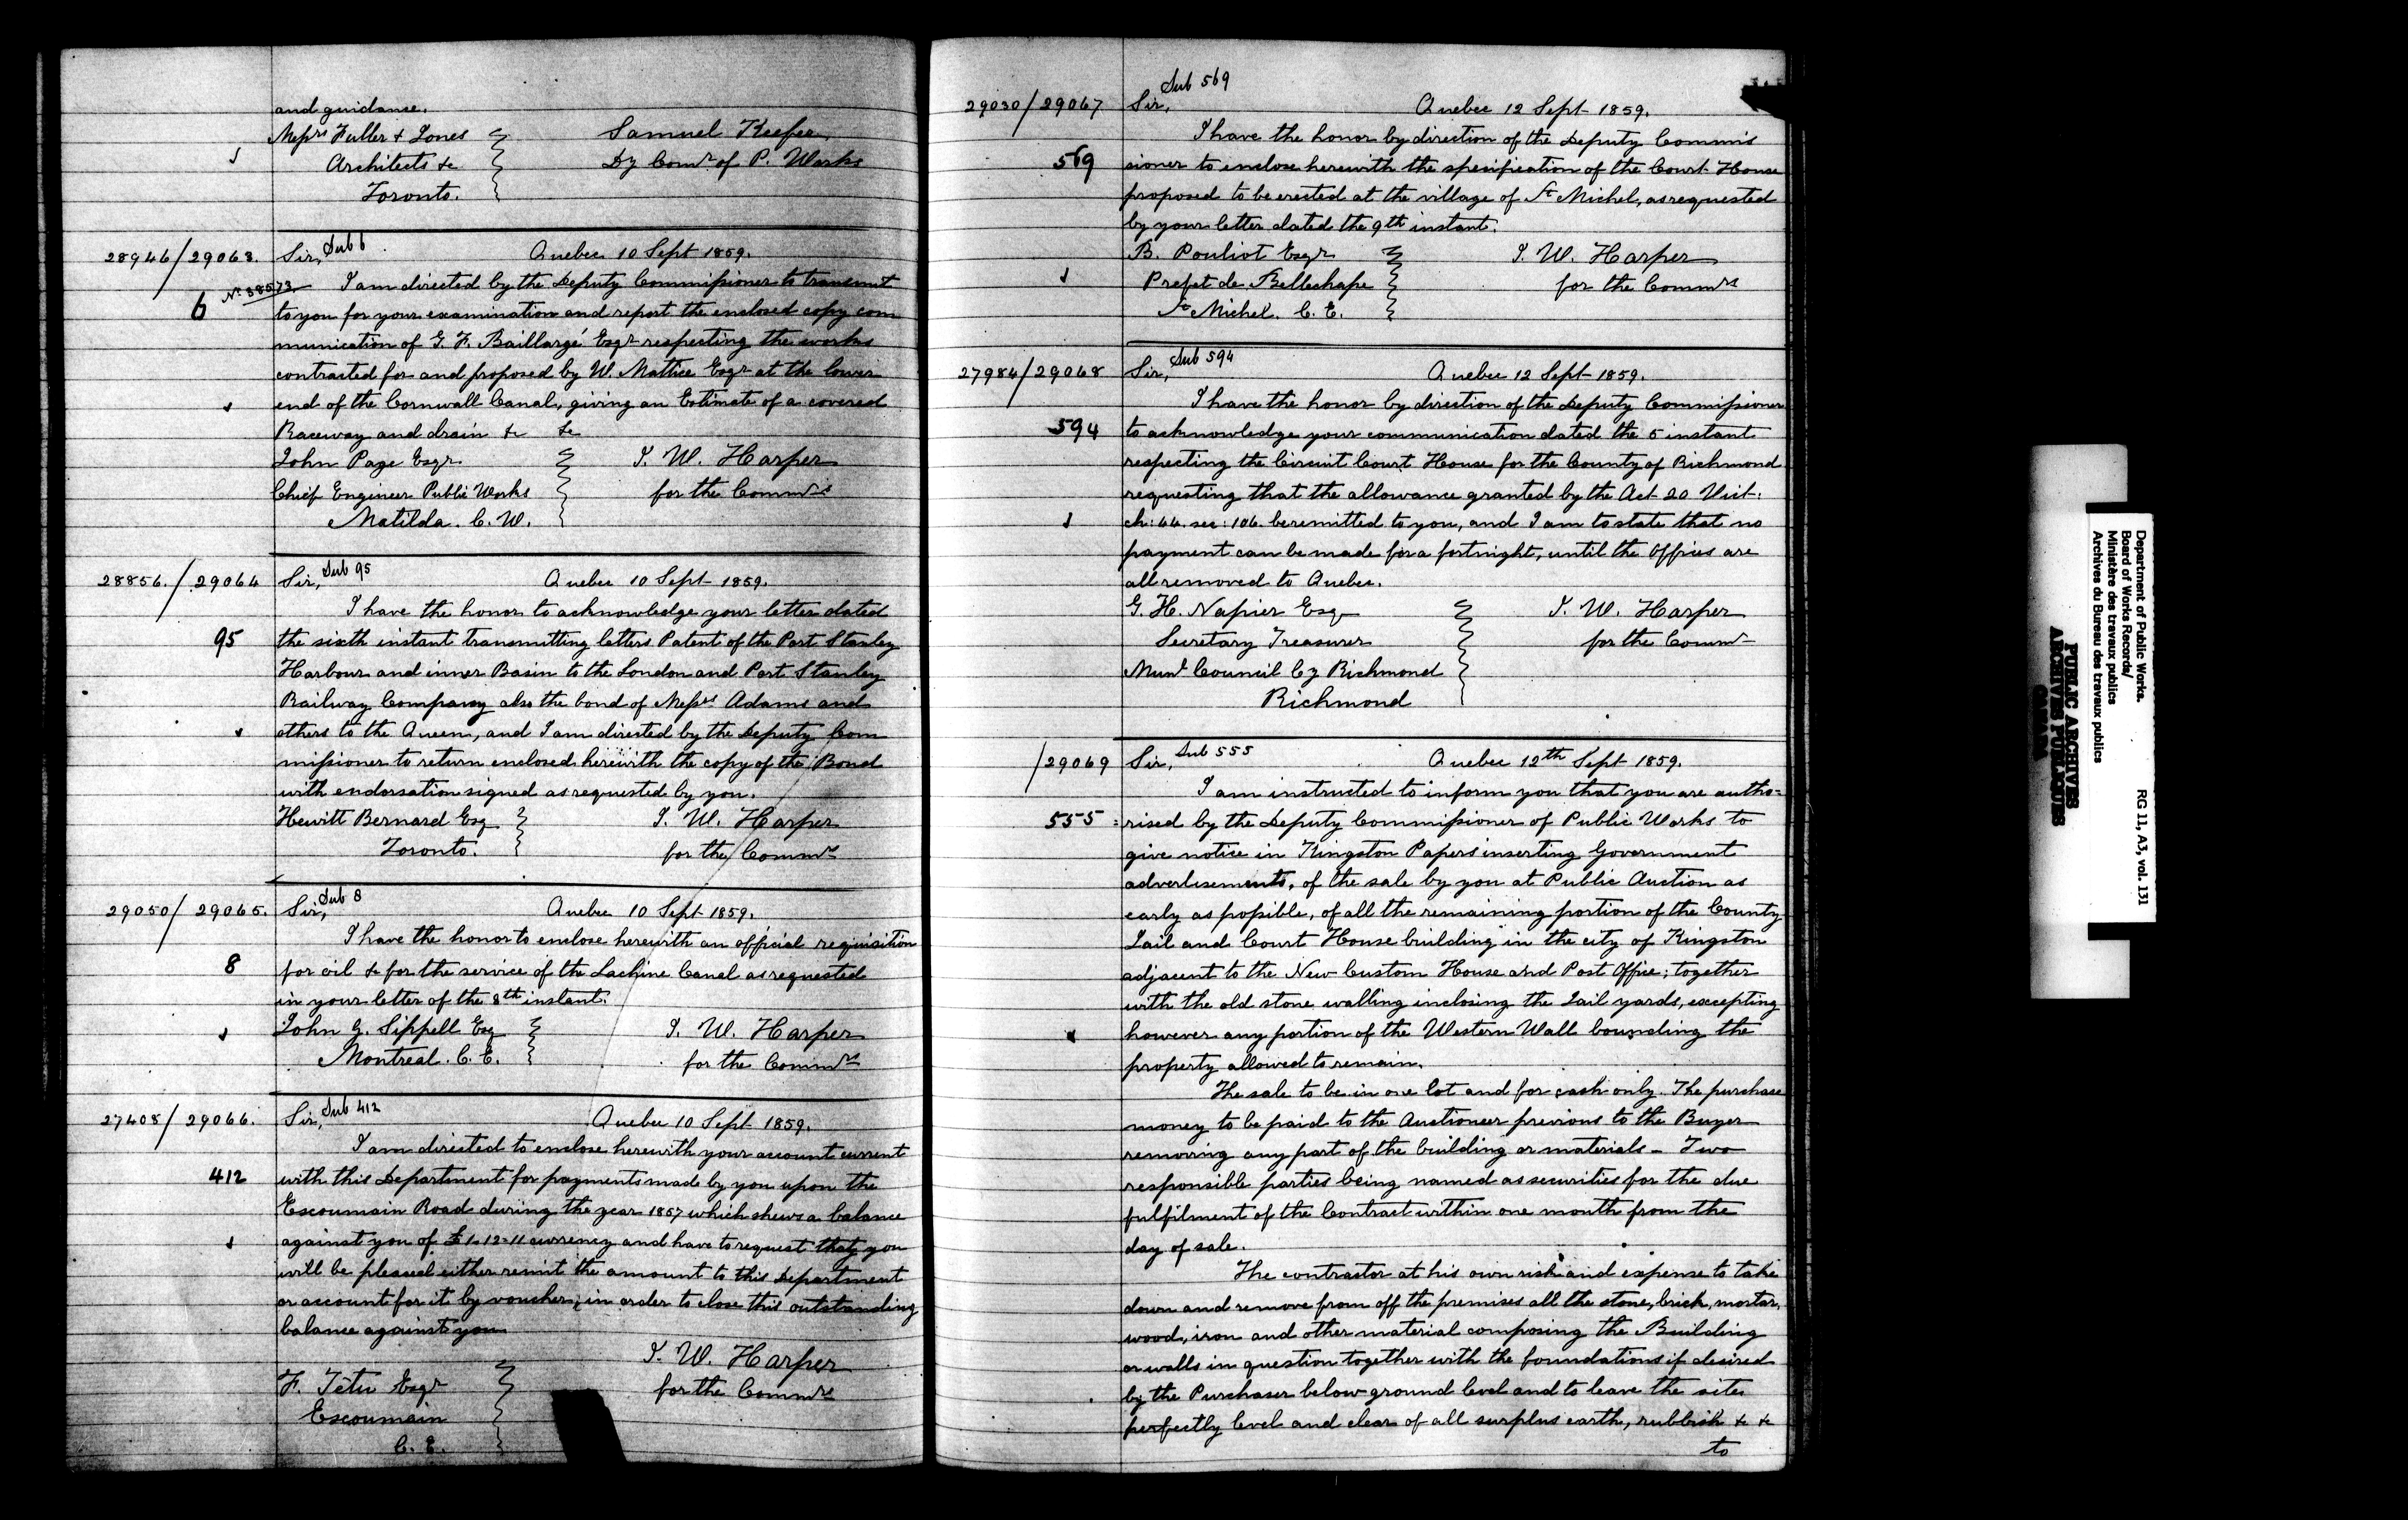 and guidance.
Messrs Fuller & Jones
Architects &c
Toronto.
Samuel Keefer
Dy Comr of P. Works
28946/29063.
Sir, Sub 6
Quebec 10 Sept 1859.
No 38573
6
I am directed by the Deputy Commissioner to transmit
to you for your examination and report the enclosed copy com
munication of G. F. Baillargé Esqr respecting the works
contracted for and proposed by W. Mattice Esqr at the lower
end of the Cornwall Canal, giving an Estimate of a covered
Raceway and drain &c &c
John Page Esqr
Chief Engineer Public Works
Matilda. C. W.
J. W. Harper
for the Commrs
28856./29064
Sir, Sub 95
Quebec 10 Sept 1859.
I have the honor to acknowledge your letter dated
95
the sixth instant transmitting letters Patent of the Port Stanley
Harbour and inner Basin to the London and Port Stanley
Railway Company also the bond of Messrs Adams and
others to the Queen, and I am directed by the Deputy Com
missioner to return enclosed herewith the copy of the Bond
with endorsation signed as requested by you.
Hewitt Bernard Esq
Toronto.
J. W. Harper
for the Commrs
29050/29065.
Sir, Sub 8
Quebec 10 Sept 1859.
I have the honor to enclose herewith an official requisition
8
for oil &c for the service of the Lachine Canal as requested
in your letter of the 8th instant.
John G. Sippell Esq
Montreal. C. E.
J. W. Harper
for the Commrs
27408/29066.
Sir, Sub 412
Quebec 10 Sept 1859.
I am directed to enclose herewith your account current
412
with this Department for payments made by you upon the
Escoumain Road during the year 1857 which shews a balance
against you of £1.12.11 currency and have to request that you
will be pleased either remit the amount to this Department
or account for it by voucher, in order to close this outstanding
balance against you
J. W. Harper
for the Commrs
F. Têtu Esqr
Escoumain
C. E.
29030/29067
Sir, Sub 569
Quebec 12 Sept 1859.
I have the honor by direction of the Deputy Commis
569
sioner to enclose herewith the specification of the Court House
proposed to be erected at the village of St Michel, as requested
by your letter dated the 9th instant.
B. Pouliot Esqr
Prefet de Bellechape
St Michel. C. E.
J. W. Harper
for the Commrs
27984/29068
Sir, Sub 594
Quebec 12 Sept 1859.
I have the honor by direction of the Deputy Commissioner
594
to acknowledge your communication dated the 5 instant
respecting the Circuit Court House for the County of Richmond
requesting that the allowance granted by the Act 20 Vict.
ch: 44. sec: 106. be remitted to you, and I am to state that no
payment can be made for a fortnight, until the Offices are
all removed to Quebec.
G. H. Napier Esq
Secretary Treasurer
Munl Council Cy Richmond
Richmond
J. W. Harper
for the Commr
/29069
Sir, Sub 555
Quebec 12th Sept 1859.
I am instructed to inform you that you are autho=
555
=rised by the Deputy Commissioner of Public Works to
give notice in Kingston Papers inserting Government
advertisements, of the sale by you at Public Auction as
early as possible, of all the remaining portion of the County
Jail and Court House building in the city of Kingston
adjacent to the New Custom House and Post Office; together
with the old stone walling inclosing the Jail yards, excepting
however any portion of the Western Wall bounding the
property allowed to remain.
The sale to be in one lot and for cash only. The purchase
money to be paid to the Auctioneer previous to the Buyer
removing any part of the building or materials - Two
responsible parties being named as securities for the due
fulfilment of the Contract within one month from the
day of sale.
The contractor at his own risk and expense to take
down and remove from off the premises all the stone, brick, mortar,
wood, iron and other material composing the Building
or walls in question together with the foundations if desired
by the Purchaser below ground level and to leave the site
perfectly level and clear of all surplus earth, rubbish &c &c
to
Department of Public Works.
Board of Works Records/
Ministère des travaux publics
Archives du Bureau des travaux publics
RG 11, A3, vol. 131
PUBLIC ARCHIVES
ARCHIVES PUBLIQUES
CANADA